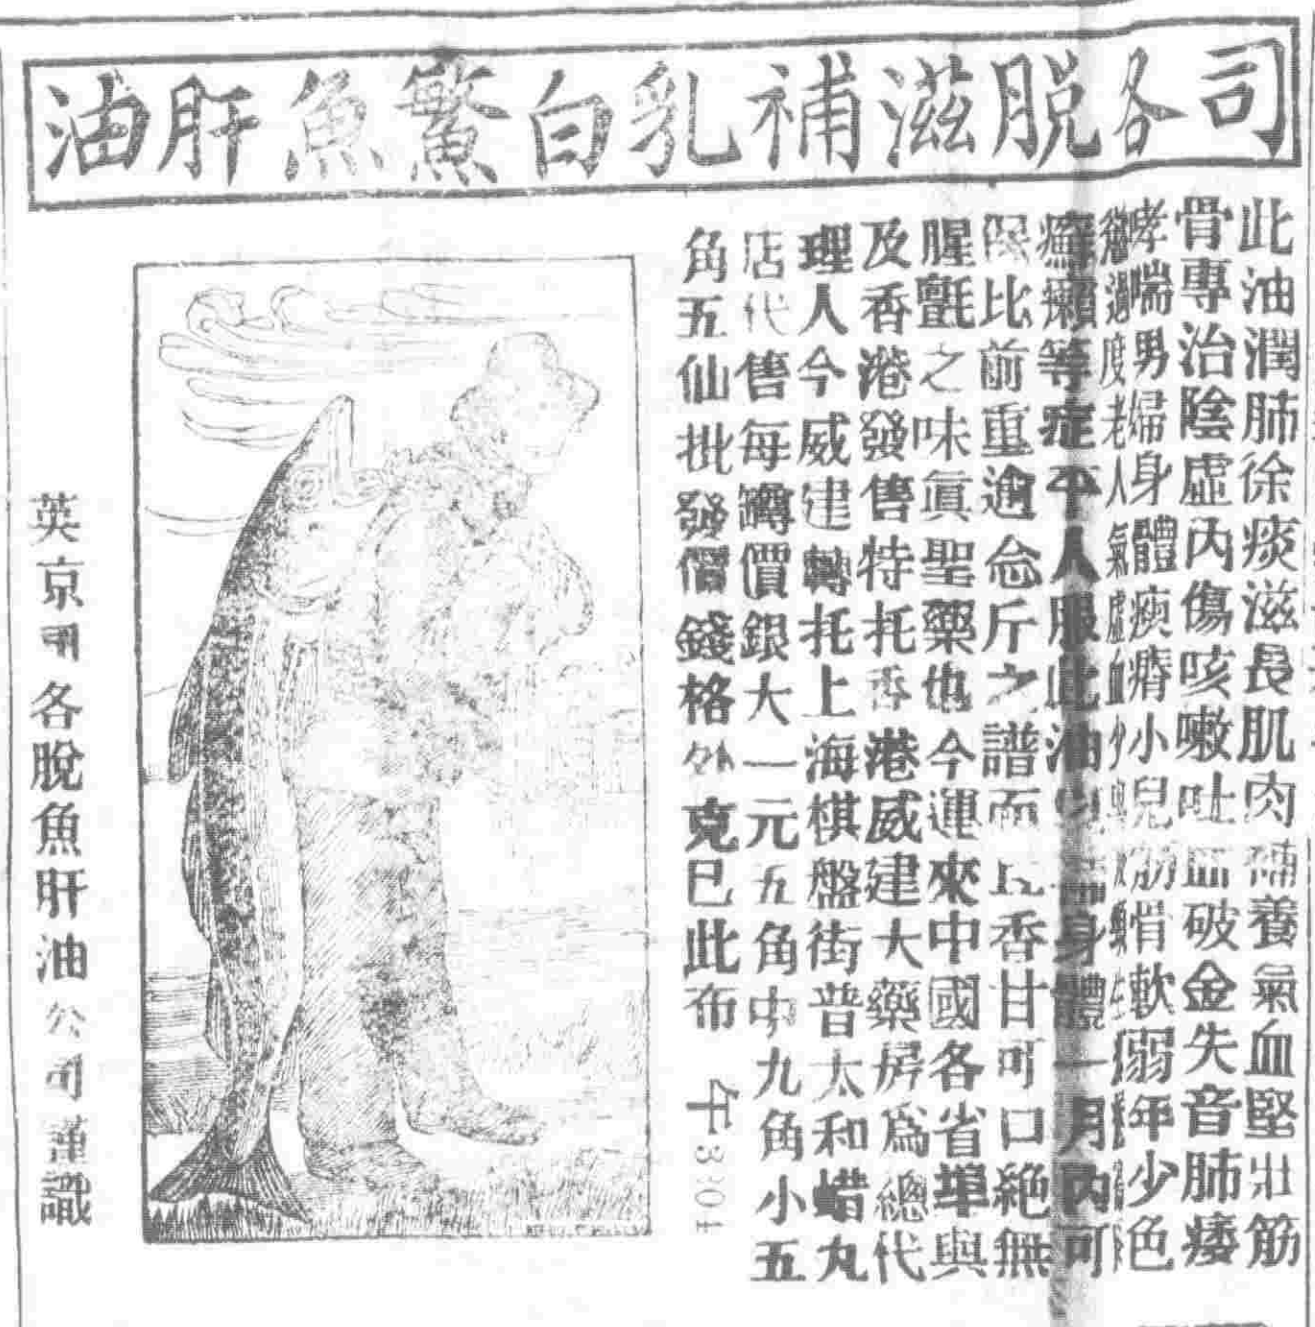 司各脱滋補乳白鰵魚肝油
此油潤肺徐痰滋長肌肉補養氣血堅壯筋
骨專治陰虛內傷咳嗽吐血破金失音肺痿
哮喘男婦身體瘐瘠小兒筋骨軟弱年少色
過度老人氣虛血少
癬癩等症平人服此油身體一月內可
比前重逾念斤之譜而且香甘可口絕無
腥氈之味眞聖藥也今運來中國各省埠與
及香港發售特托香港威建大藥房爲總代
理人今威建轉托上海棋盤街普太和蜡丸
店代售每罇價銀大一元五角中九角小五
角五仙批發價錢格外克已此布
午3304
英京司各脫魚肝油公司謹識